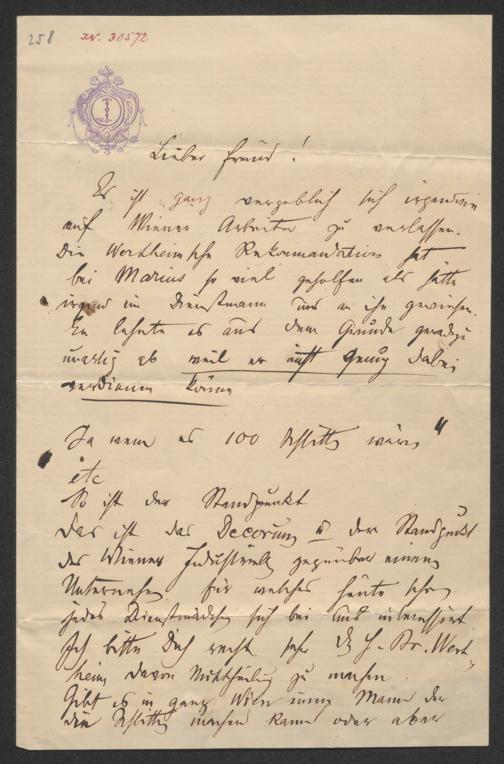 258 IN. 30572
Lieber Freund!
Es ist ganz vergeblich sich irgendwie
auf Wiener Arbeiter zu verlassen.
Die Wertheimsche Rekommandation hat
bei Marius so viel geholfen als hätte
irgend ein Dienstmann uns an ihn gewiesen.
Er lehnte es aus dem Grunde geradezu
unartig ab weil er nicht genug dabei
verdienen könne
Ja wenn es 100 Schlitten wären"
etc
So ist der Standpunkt
Das ist das Decorum u der Standpunkt
der Wiener Industriellen gegenüber einem
Unternehmen für welches heute schon
jedes Dienstmädchen sich bei uns interessirt
Ich bitte Dich recht sehr H. Br. Wert-
heim davon Mittheilung zu machen.
Gibt es in ganz Wien einen Mann der
die Schlitten machen kann oder aber